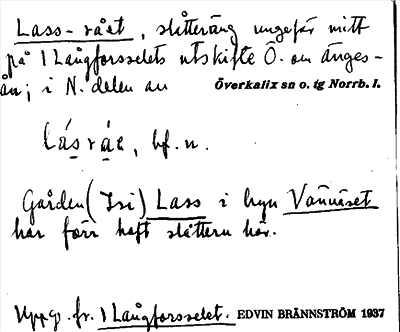 Lass-rået, slåtteräng ungefär mitt
på 1 Långforsselets utskifte Ö. om änges-
ån; i N. delen av Överkalix sn o. tg Norrb. l.
lásráe, bf. n.
Gården (Isi) Lass i byn Vännäset
har förr haft slåttern här.
Uppg. fr. 1 Långforsselet. EDVIN BRÄNNSTRÖM 1937